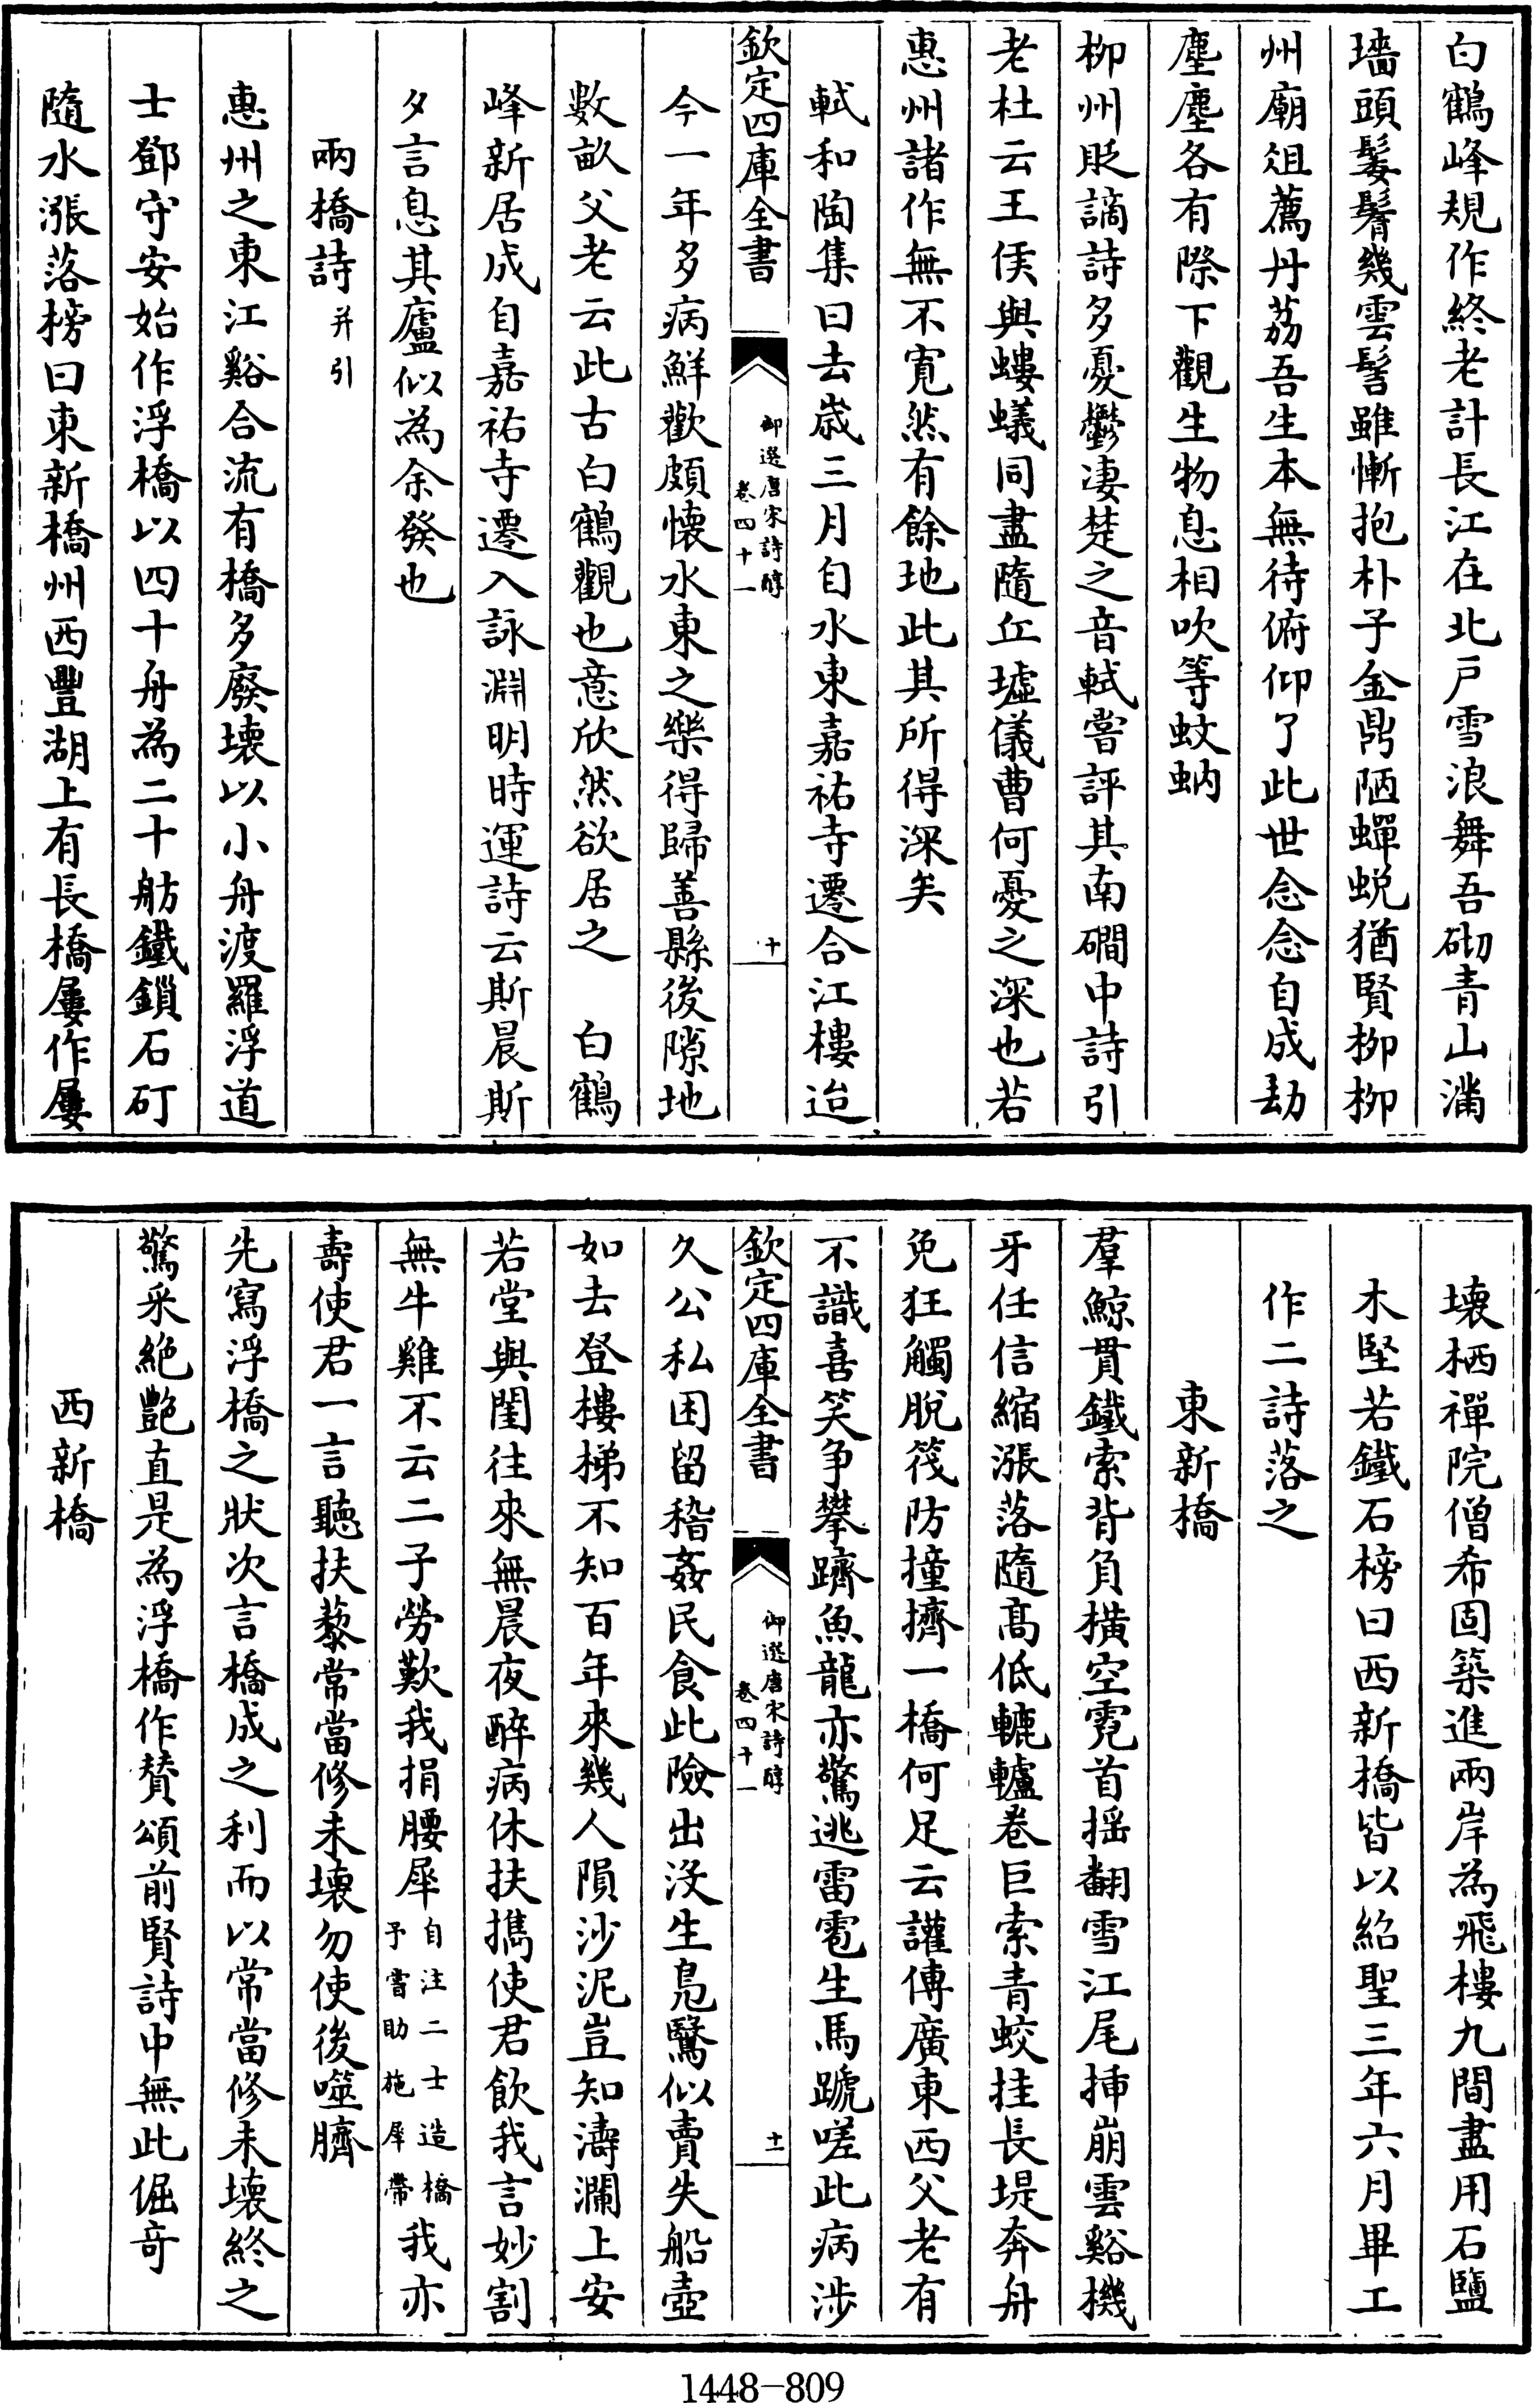 白鶴峰規作終老計長江在北戸雪浪舞吾砌青山滿
墻頭鬖髿幾雲髻雖慚抱朴子金鼎陋蟬蛻猶賢柳柳
州廟俎薦丹荔吾生本無待俯仰了此世念念自成劫
塵塵各有際下觀生物息相吹等蚊蚋
柳州貶謫詩多憂鬱淒楚之音軾嘗評其南磵中詩引
老杜云王侯與螻蟻同盡隨丘墟儀曹何憂之深也若
惠州諸作無不寛然有餘地此其所得深矣
軾和陶集曰去歲三月自水東嘉祐寺遷合江樓迨
欽定四庫全書
御選唐宋詩醇
卷四十一
十
今一年多病鮮歡頗懷水東之樂得歸善縣後隙地
數畝父老云此古白鶴觀也意欣然欲居之 白鶴
峰新居成自嘉祐寺遷入詠淵明時運詩云斯晨斯
夕言息其廬似為余發也
兩橋詩并引
惠州之東江谿合流有橋多廢壞以小舟渡羅浮道
士鄧守安始作浮橋以四十舟為二十舫鐵鎖石矴
隨水漲落榜曰東新橋州西豐湖上有長橋屢作屢
壞栖禪院僧希固築進兩岸為飛樓九間盡用石鹽
木堅若鐵石榜曰西新橋皆以紹聖三年六月畢工
作二詩落之
東新橋
羣鯨貫鐵索背負橫空霓首揺翻雪江尾插崩雲谿機
牙任信縮漲落隨髙低轆轤卷巨索青蛟挂長堤奔舟
免狂觸脫筏防撞擠一橋何足云讙傳廣東西父老有
不識喜笑争攀躋魚龍亦驚逃雷雹生馬蹏嗟此病涉
欽定四庫全書
御選唐宋詩醇
卷四十一
十一
久公私困留稽姦民食此險出沒生鳬鷖似賣失船壺
如去登樓梯不知百年來幾人隕沙泥豈知濤瀾上安
若堂與閨往來無晨夜醉病休扶擕使君飲我言妙割
無牛雞不云二子勞歎我捐腰犀自注二士造橋予嘗助施犀帶我亦
壽使君一言聽扶藜常當修未壞勿使後噬臍
先寫浮橋之狀次言橋成之利而以常當修未壞終之
驚采絶艶直是為浮橋作贊頌前賢詩中無此倔奇
西新橋
1448-809